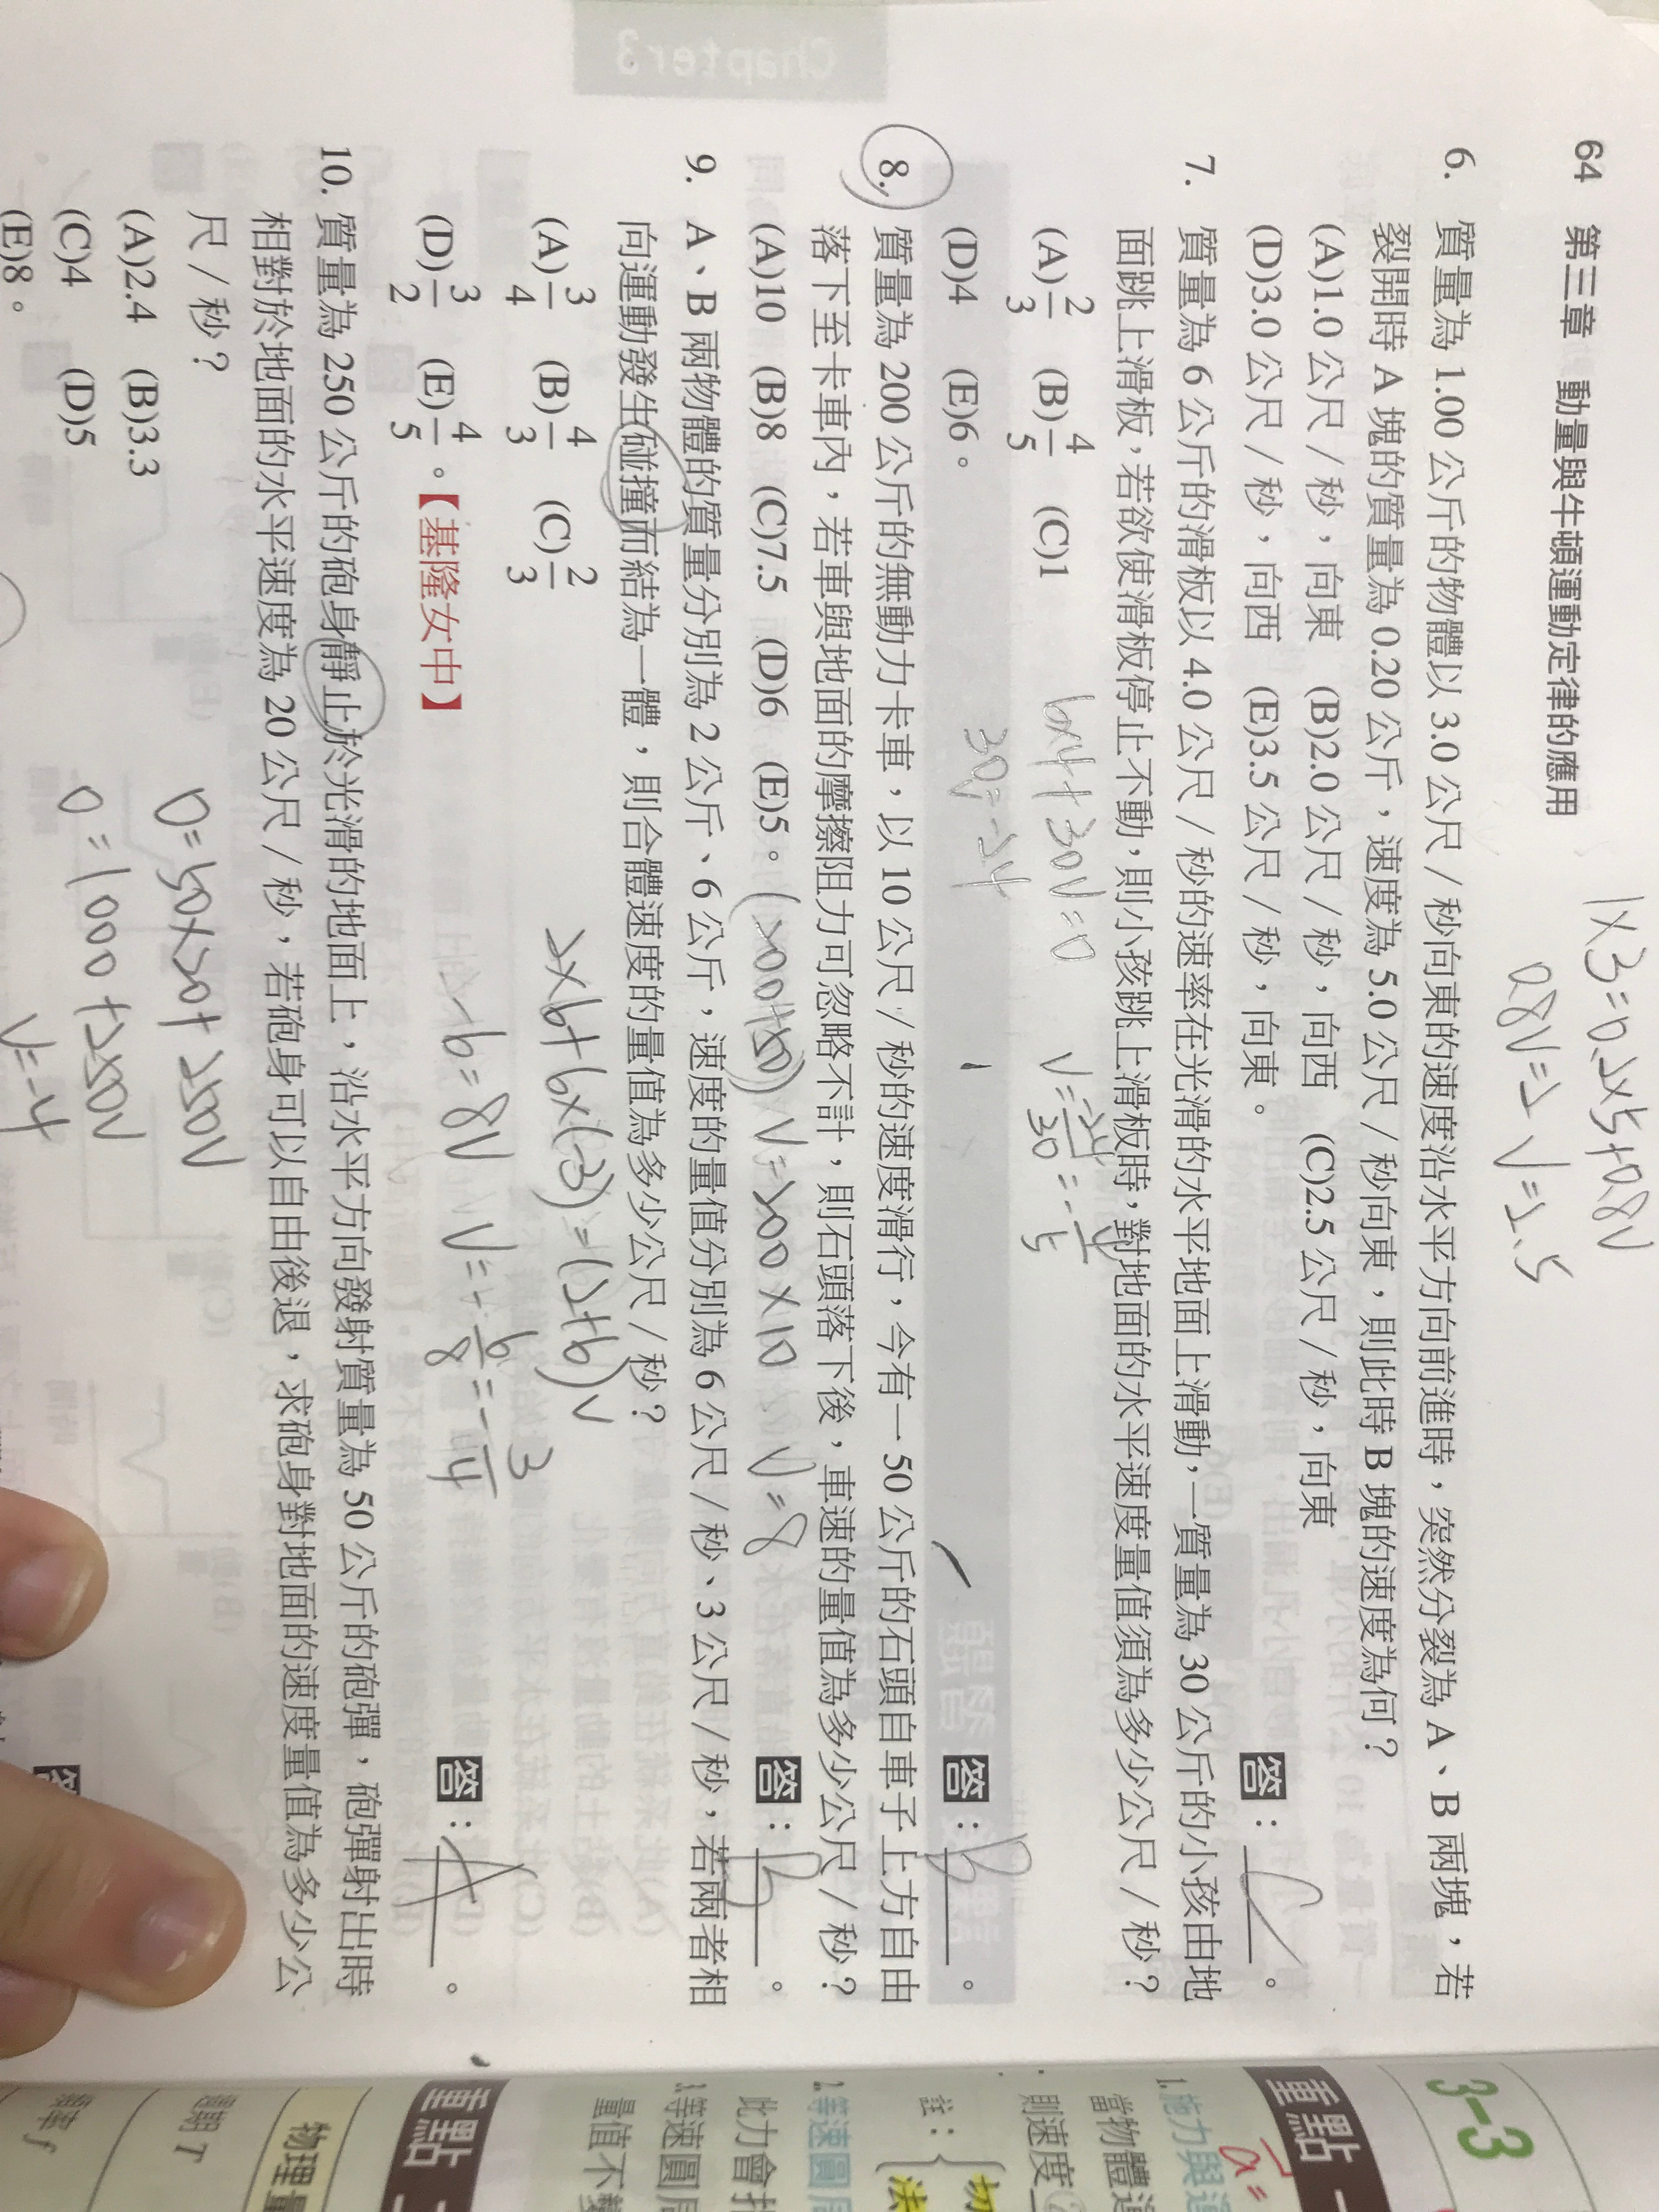 64 第三章 動量與牛頓運動定律的應用
1×3=0.2×5+0.8V
0.8V=2 V=2.5
6. 質量為 1.00 公斤的物體以 3.0 公尺／秒向東的速度沿水平方向前進時，突然分裂為 A、B 兩塊，若
裂開時 A 塊的質量為 0.20 公斤，速度為 5.0 公尺／秒向東，則此時 B 塊的速度為何？
(A)1.0 公尺／秒，向東 (B)2.0 公尺／秒，向西 (C)2.5 公尺／秒，向東
(D)3.0 公尺／秒，向西 (E)3.5 公尺／秒，向東。
答：C。
7. 質量為 6 公斤的滑板以 4.0 公尺／秒的速率在光滑的水平地面上滑動，一質量為 30 公斤的小孩由地
面跳上滑板，若欲使滑板停止不動，則小孩跳上滑板時，對地面的水平速度量值須為多少公尺／秒？
(A)2/3 (B)4/5 (C)1
6×4+30V=0 V=-24/30=-4/5
(D)4 (E)6。
30V=-24
答：B。
8. 質量為 200 公斤的無動力卡車，以 10 公尺／秒的速度滑行，今有一 50 公斤的石頭自車子上方自由
落下至卡車內，若車與地面的摩擦阻力可忽略不計，則石頭落下後，車速的量值為多少公尺／秒？
(A)10 (B)8 (C)7.5 (D)6 (E)5。 (200+50)V=200×10 V=8
答：B。
9. A、B 兩物體的質量分別為 2 公斤、6 公斤，速度的量值分別為 6 公尺／秒、3 公尺／秒，若兩者相
向運動發生碰撞而結為一體，則合體速度的量值為多少公尺／秒？
(A)3/4 (B)4/3 (C)2/3
2×6+6×(-3)=(2+6)V
(D)3/2 (E)4/5。【基隆女中】
-6=8V V=-6/8=-3/4
答：A。
10. 質量為 250 公斤的砲身靜止於光滑的地面上，沿水平方向發射質量為 50 公斤的砲彈，砲彈射出時
相對於地面的水平速度為 20 公尺／秒，若砲身可以自由後退，求砲身對地面的速度量值為多少公
尺／秒？
0=50×20+250V
(A)2.4 (B)3.3
(C)4 (D)5
0=1000+250V
(E)8。
V=-4
Chapter 3
3-3
重點一
1. 施力與運
當物體運
則速度
註：
切
法
2. 等速圓周
此力會
3. 等速圓周
量值不
重點二
物理量
週期 T
頻率 f